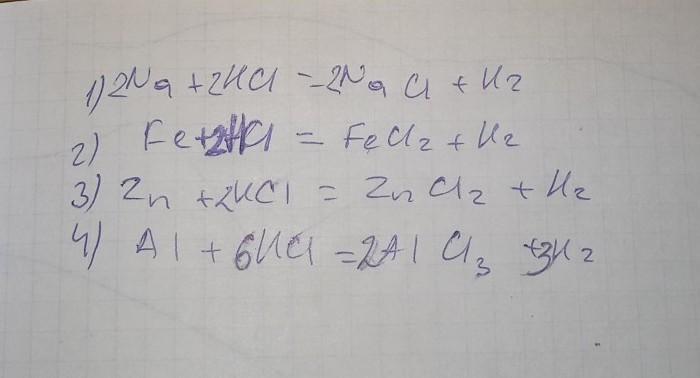 1) 2Na + 2HCl = 2NaCl + H2
2) Fe + 2HCl = FeCl2 + H2
3) Zn + 2HCl = ZnCl2 + H2
4) Al + 6HCl = 2AlCl3 + 3H2